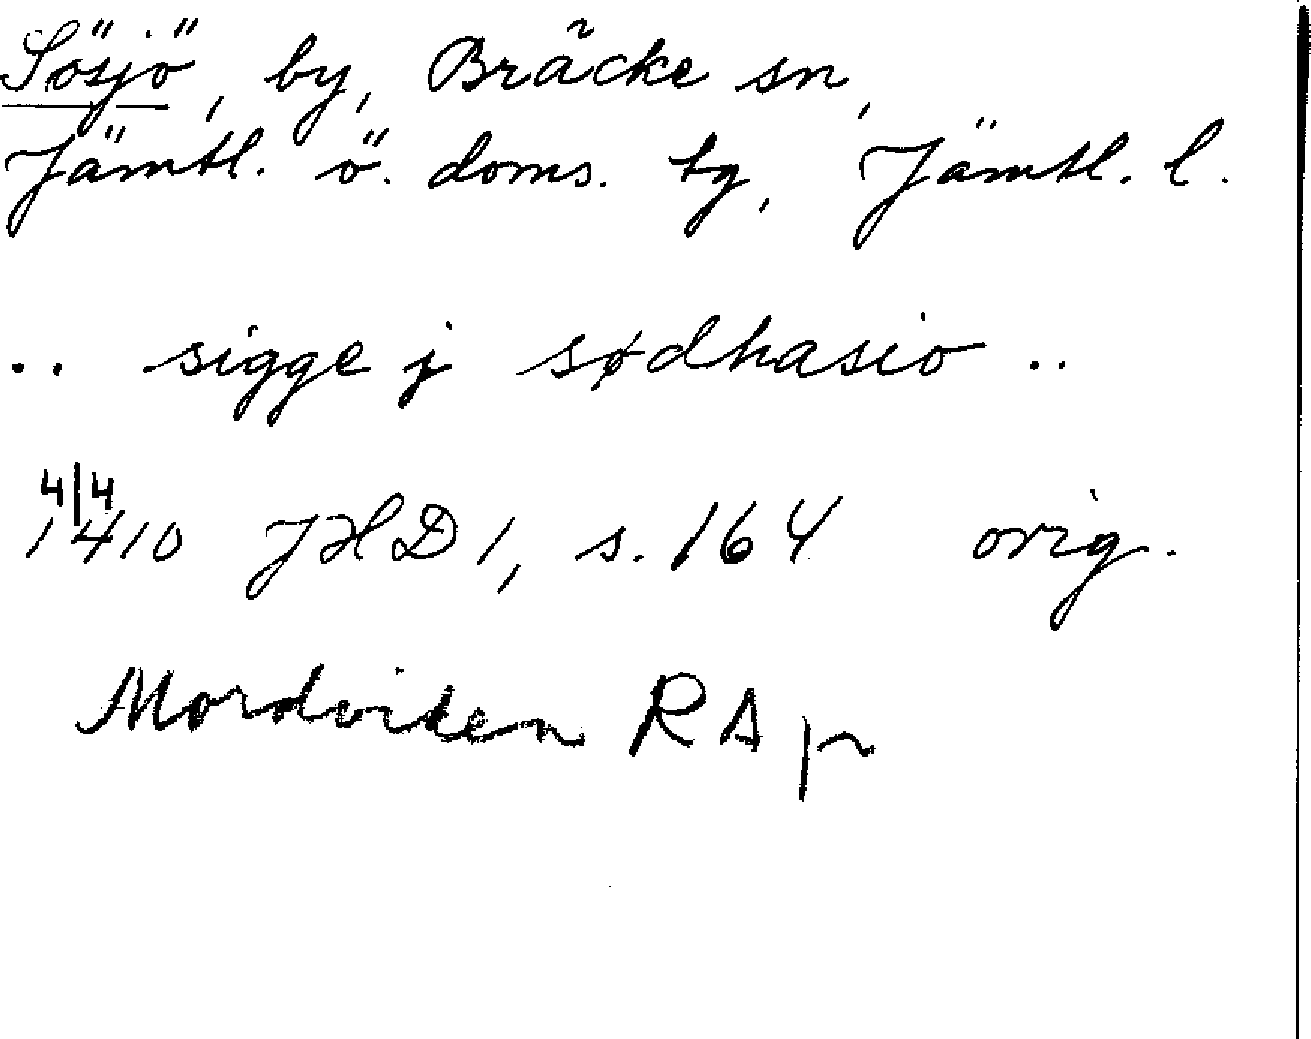 Sösjö, by, Bräcke sn,
Jämtl. ö. doms. tg, Jämtl. l.
.. sigge j sødhasio ..
4/4
1410 JHD 1, s. 164 orig.
Mordviken RAp